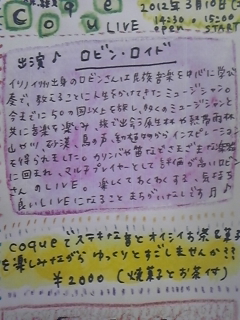 coque
cou LIVE
2012年3月10日(土
14:30 15:00
open START
出演♪ ロビン・ロイド
イリノイ州出身のロビンさんは民族音楽を中心に学び
奏で、教えることに人生をかけてきたミュージシャン。
今までに50ヵ国以上を旅し、多くのミュージシャンと
共に音楽を楽しみ、旅で出会う原生林や熱帯雨林
山や川、砂漠、鳥の声、動植物からインスピレーション
を得られました。カリンバや笛などさまざまな楽器
に囲まれ、マルチプレイヤーとして評価が高いロビン
さんのLIVE。楽しくてわくわくする、気持ち
良いLIVEになることまちがいなしです♪
coqueでステキな音とオイシイお茶&菓子
を楽しみながらゆっくりとすごしませんか??
¥2000(焼菓子とお茶付)